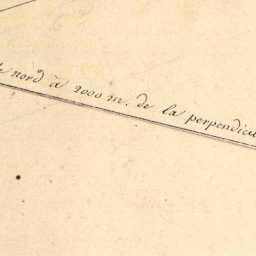 nord à 2000 m. de la perpendicu